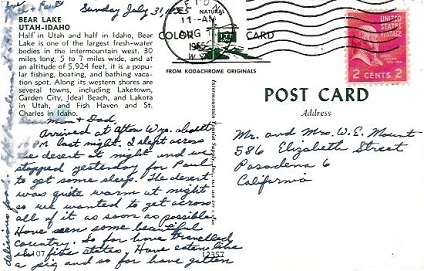 Sunday July 31, 1955
BEAR LAKE
UTAH-IDAHO
Half in Utah and half in Idaho, Bear
Lake is one of the largest fresh-water
bodies in the intermountain west. 30
miles long, 5 to 7 miles wide, and at
an altitude of 5,924 feet, it is a popu-
lar fishing, boating, and bathing vaca-
tion spot. Along its western shores are
several towns, including Laketown,
Garden City, Ideal Beach, and Lakota
in Utah, and Fish Haven and St.
Charles in Idaho.
Dear Mom + Dad,
Arrived at Afton Wyo. about
PM last night. I slept across
the desert Fri night and we
stopped yesterday for Paul
to get some sleep. The desert
was quite warm at night
so we wanted to get across
all of it as soon as possible.
Have seen some beautiful
country. So far have travelled
in five states. Have eaten like
a pig and so far have gotten
delicious food
107
12357
NATURAL
COLOR CARD
11 - AM
AUG
1955
WYO
FROM KODACHROME ORIGINALS
UNITED STATES POSTAGE
2 CENTS 2
POST CARD
Address
Mr. and Mrs. W. E. Mount
586 Elizabeth Street
Pasadena 6
California